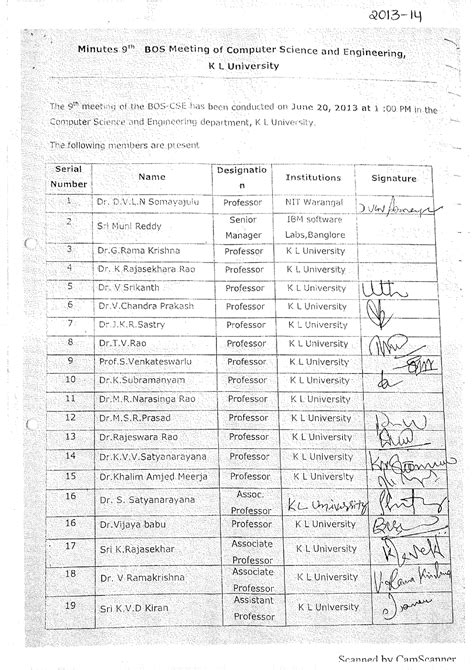 2013-14
Minutes 9th BOS Meeting of Computer Science and Engineering,
K L University
The 9th meeting of the BOS-CSE has been conducted on June 20, 2013 at 1 :00 PM in the
Computer Science and Engineering department, K L University.
The following members are present
Serial Number Name Designation Institutions Signature
1 Dr. D.V.L.N Somayajulu Professor NIT Warangal
2 Sri Muni Reddy Senior Manager IBM software Labs,Banglore
3 Dr.G.Rama Krishna Professor K L University
4 Dr. K.Rajasekhara Rao Professor K L University
5 Dr. V.Srikanth Professor K L University
6 Dr.V.Chandra Prakash Professor K L University
7 Dr.J.K.R.Sastry Professor K L University
8 Dr.T.V.Rao Professor K L University
9 Prof.S.Venkateswarlu Professor K L University
10 Dr.K.Subramanyam Professor K L University
11 Dr.M.R.Narasinga Rao Professor K L University
12 Dr.M.S.R.Prasad Professor K L University
13 Dr.Rajeswara Rao Professor K L University
14 Dr.K.V.V.Satyanarayana Professor K L University
15 Dr.Khalim Amjed Meerja Professor K L University
16 Dr. S. Satyanarayana Assoc. Professor K L University
16 Dr.Vijaya babu Professor K L University
17 Sri K.Rajasekhar Associate Professor K L University
18 Dr. V Ramakrishna Associate Professor K L University
19 Sri K.V.D Kiran Assistant Professor K L University
Scanned by CamScanner